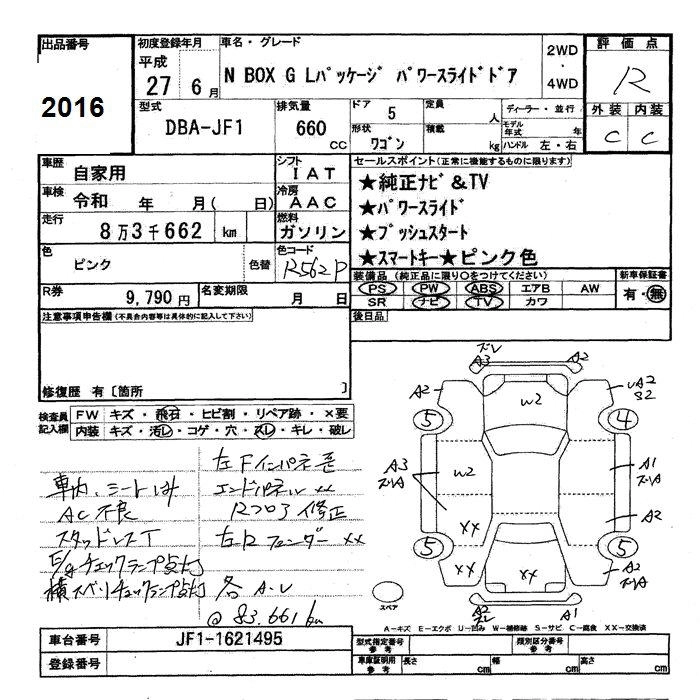 出品番号
2016
初度登録年月
平成
27 6月
車名・グレード
N BOX G Lパッケージ パワースライドドア
2WD
・
4WD
評価点
R
外装 内装
C C
型式
DBA-JF1
排気量
660 cc
ドア 5
定員 人
ディーラー・並行
モデル年式 年
形状 ワゴン
積載 kg
ハンドル 左・右
車歴 自家用
シフト IAT
車検 令和 年 月( 日)
冷房 AAC
走行 8万3千662 km
燃料 ガソリン
色 ピンク 色替
色コード R562P
R券 9,790円
名変期限 月 日
セールスポイント(正常に機能するものに限ります)
★純正ナビ&TV
★パワースライド
★プッシュスタート
★スマートキー★ピンク色
装備品 (純正品に限り○をつけてください)
新車保証書
PS PW ABS エアB AW
SR ナビ TV カワ
有・無
後日品
注意事項申告欄(不具合内容等は具体的に記入して下さい)
修復歴 有[箇所 ]
検査員記入欄
FW キズ・飛石・ヒビ割・リペア跡・×要
内装 キズ・汚レ・コゲ・穴・スレ・キレ・破レ
左Fインパネ歪
車内、シートしみ
エンドパネル xx
AC不良
Rフロア修正
スタッドレスT
左Rフェンダー xx
E/gチェックランプ点灯
横スベリチェックランプ点灯
各 A.U
@ 83.661km
ズレ
A3 A2
A2 W2 UA2
S2
5 4
A3 W2 A1
ズレA
XX A2
5 5
XX XX A2
ズレA
A2 A1
ズレ
スペア
A-キズ E-エクボ U-凹み W-補修跡 S-サビ C-腐食 XX-交換済
車台番号 JF1-1621495
登録番号
型式指定番号 参考
類別区分番号 参考
車庫証明用 参考
長さ cm 幅 cm 高さ cm